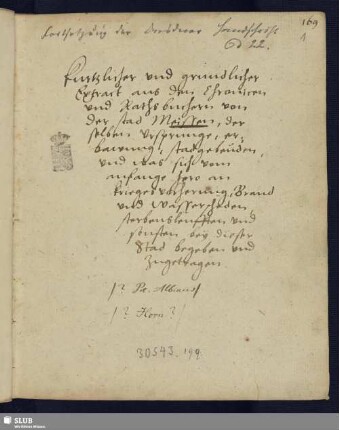 169
Fortsetzung der Dresdner Handschrift
d 22.
Kurtzlicher und grundlicher
Extract aus den Chroniken
und Rathsbüchern von
der stad Meissen, der
selben Ursprunge, er-
bawung, stadgebeuden,
und was sich vom
anfange hero an
Krieges vorherung, Brand
und Wasserscheden,
sterbensleufften und
sonsten bey dieser
Stad begeben und
zugetragen
/? Pet. Albinus/
/? Horn?/
30543. 199
SLUB
Wir führen Wissen.